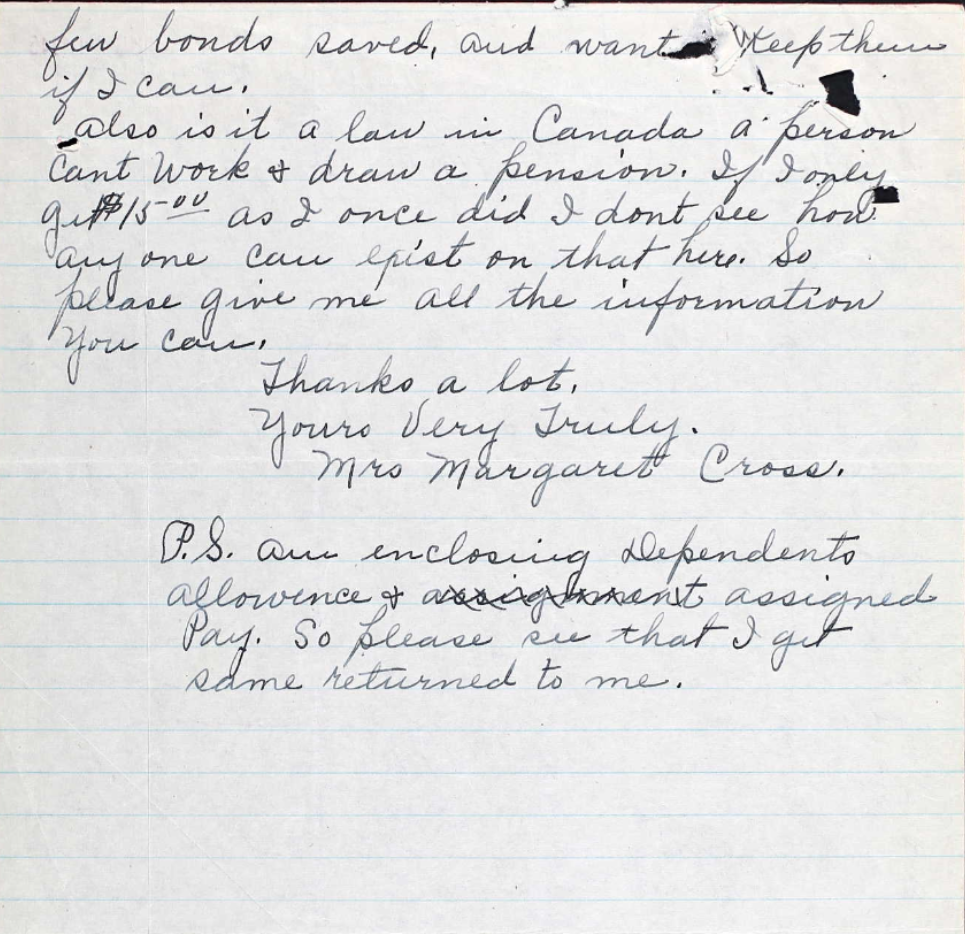 few bonds saved, and want keep them
if I can.
also is it a law in Canada a person
cant work & draw a pension. If I only
get $15.00 as I once did I dont see how
any one can exist on that here. So
please give me all the information
You can.
Thanks a lot.
Yours Very Truly.
Mrs Margaret Cross.
P.S. am enclosing Dependents
allowence & assignment assigned
Pay. So please see that I get
same returned to me.